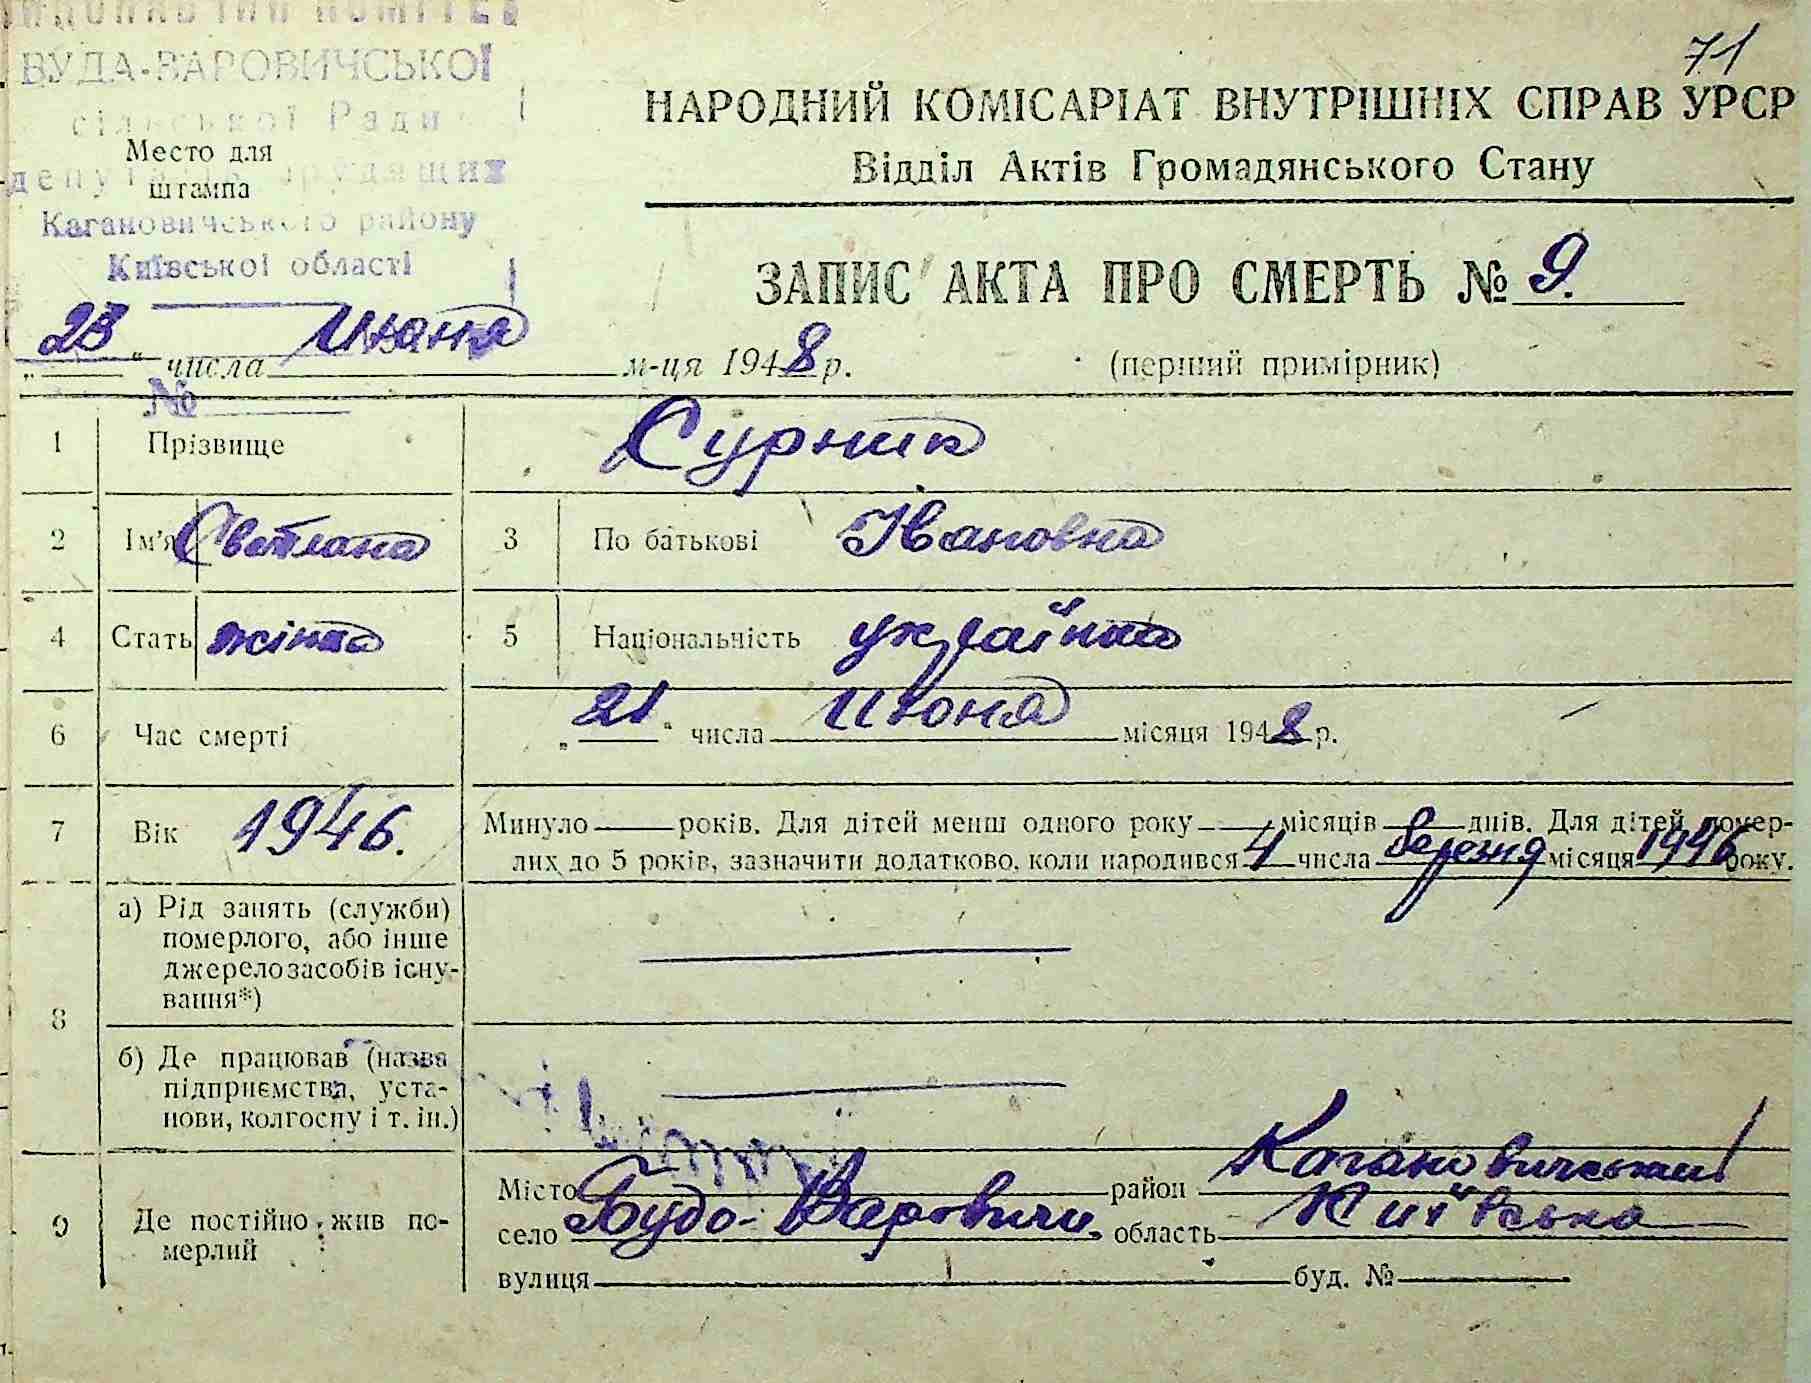 71
ВИКОНАВЧИЙ КОМІТЕТ
БУДА-ВАРОВИЧСЬКОЇ
сільської Ради
депутатів трудящих
Кагановичського району
Київської області
Место для
штампа
НАРОДНИЙ КОМІСАРІАТ ВНУТРІШНІХ СПРАВ УРСР
Відділ Актів Громадянського Стану
ЗАПИС АКТА ПРО СМЕРТЬ № 9.
„23“ числа Июня м-ця 1948 р. (перший примірник)
№
1 Прізвище Сурник
2 Ім'я Светлана 3 По батькові Івановна
4 Стать жінка 5 Національність українка
6 Час смерті „21“ числа Июня місяця 1948 р.
7 Вік 1946. Минуло — років. Для дітей менш одного року — місяців — днів. Для дітей помер-
лих до 5 років, зазначити додатково, коли народився 4 числа березня місяця 1946 року.
8 а) Рід занять (служби)
померлого, або інше
джерело засобів існу-
вання*)
б) Де працював (назва
підприємства, уста-
нови, колгоспу і т. ін.)
9 Де постійно жив по-
мерлий
Місто район Кагановичський
село Будо-Варовичи область Київська
вулиця буд. №